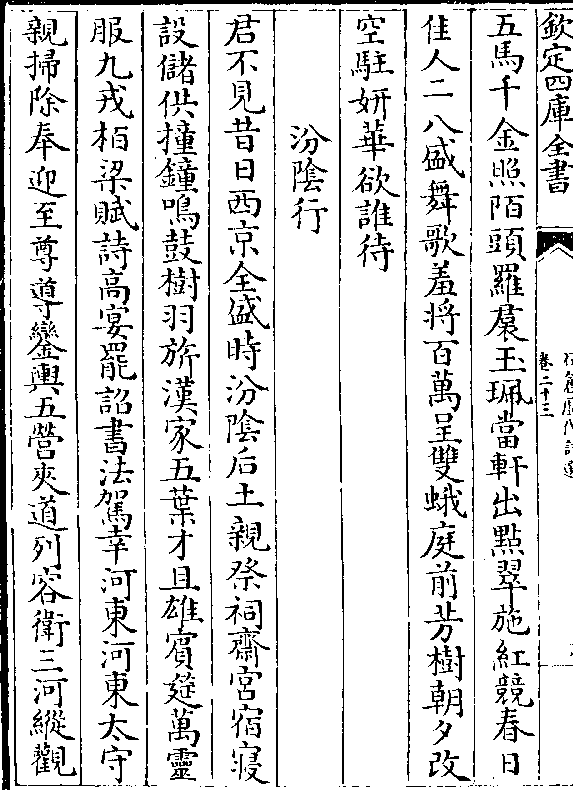 欽定四庫全書
卷二十三
五馬千金照陌頭羅裠玉珮當軒出點翠施紅競春日
佳人二八盛舞歌羞將百萬呈雙蛾庭前芳樹朝夕改
空駐妍華欲誰待
汾陰行
君不見昔日西京全盛時汾陰后土親祭祠齋宮宿寢
設儲供撞鐘鳴鼓樹羽旂漢家五葉才且雄賓筵萬靈
服九戎栢梁賦詩高宴罷詔書法駕幸河東河東太守
親掃除奉迎至尊導鑾輿五營夾道列容衛三河縱觀